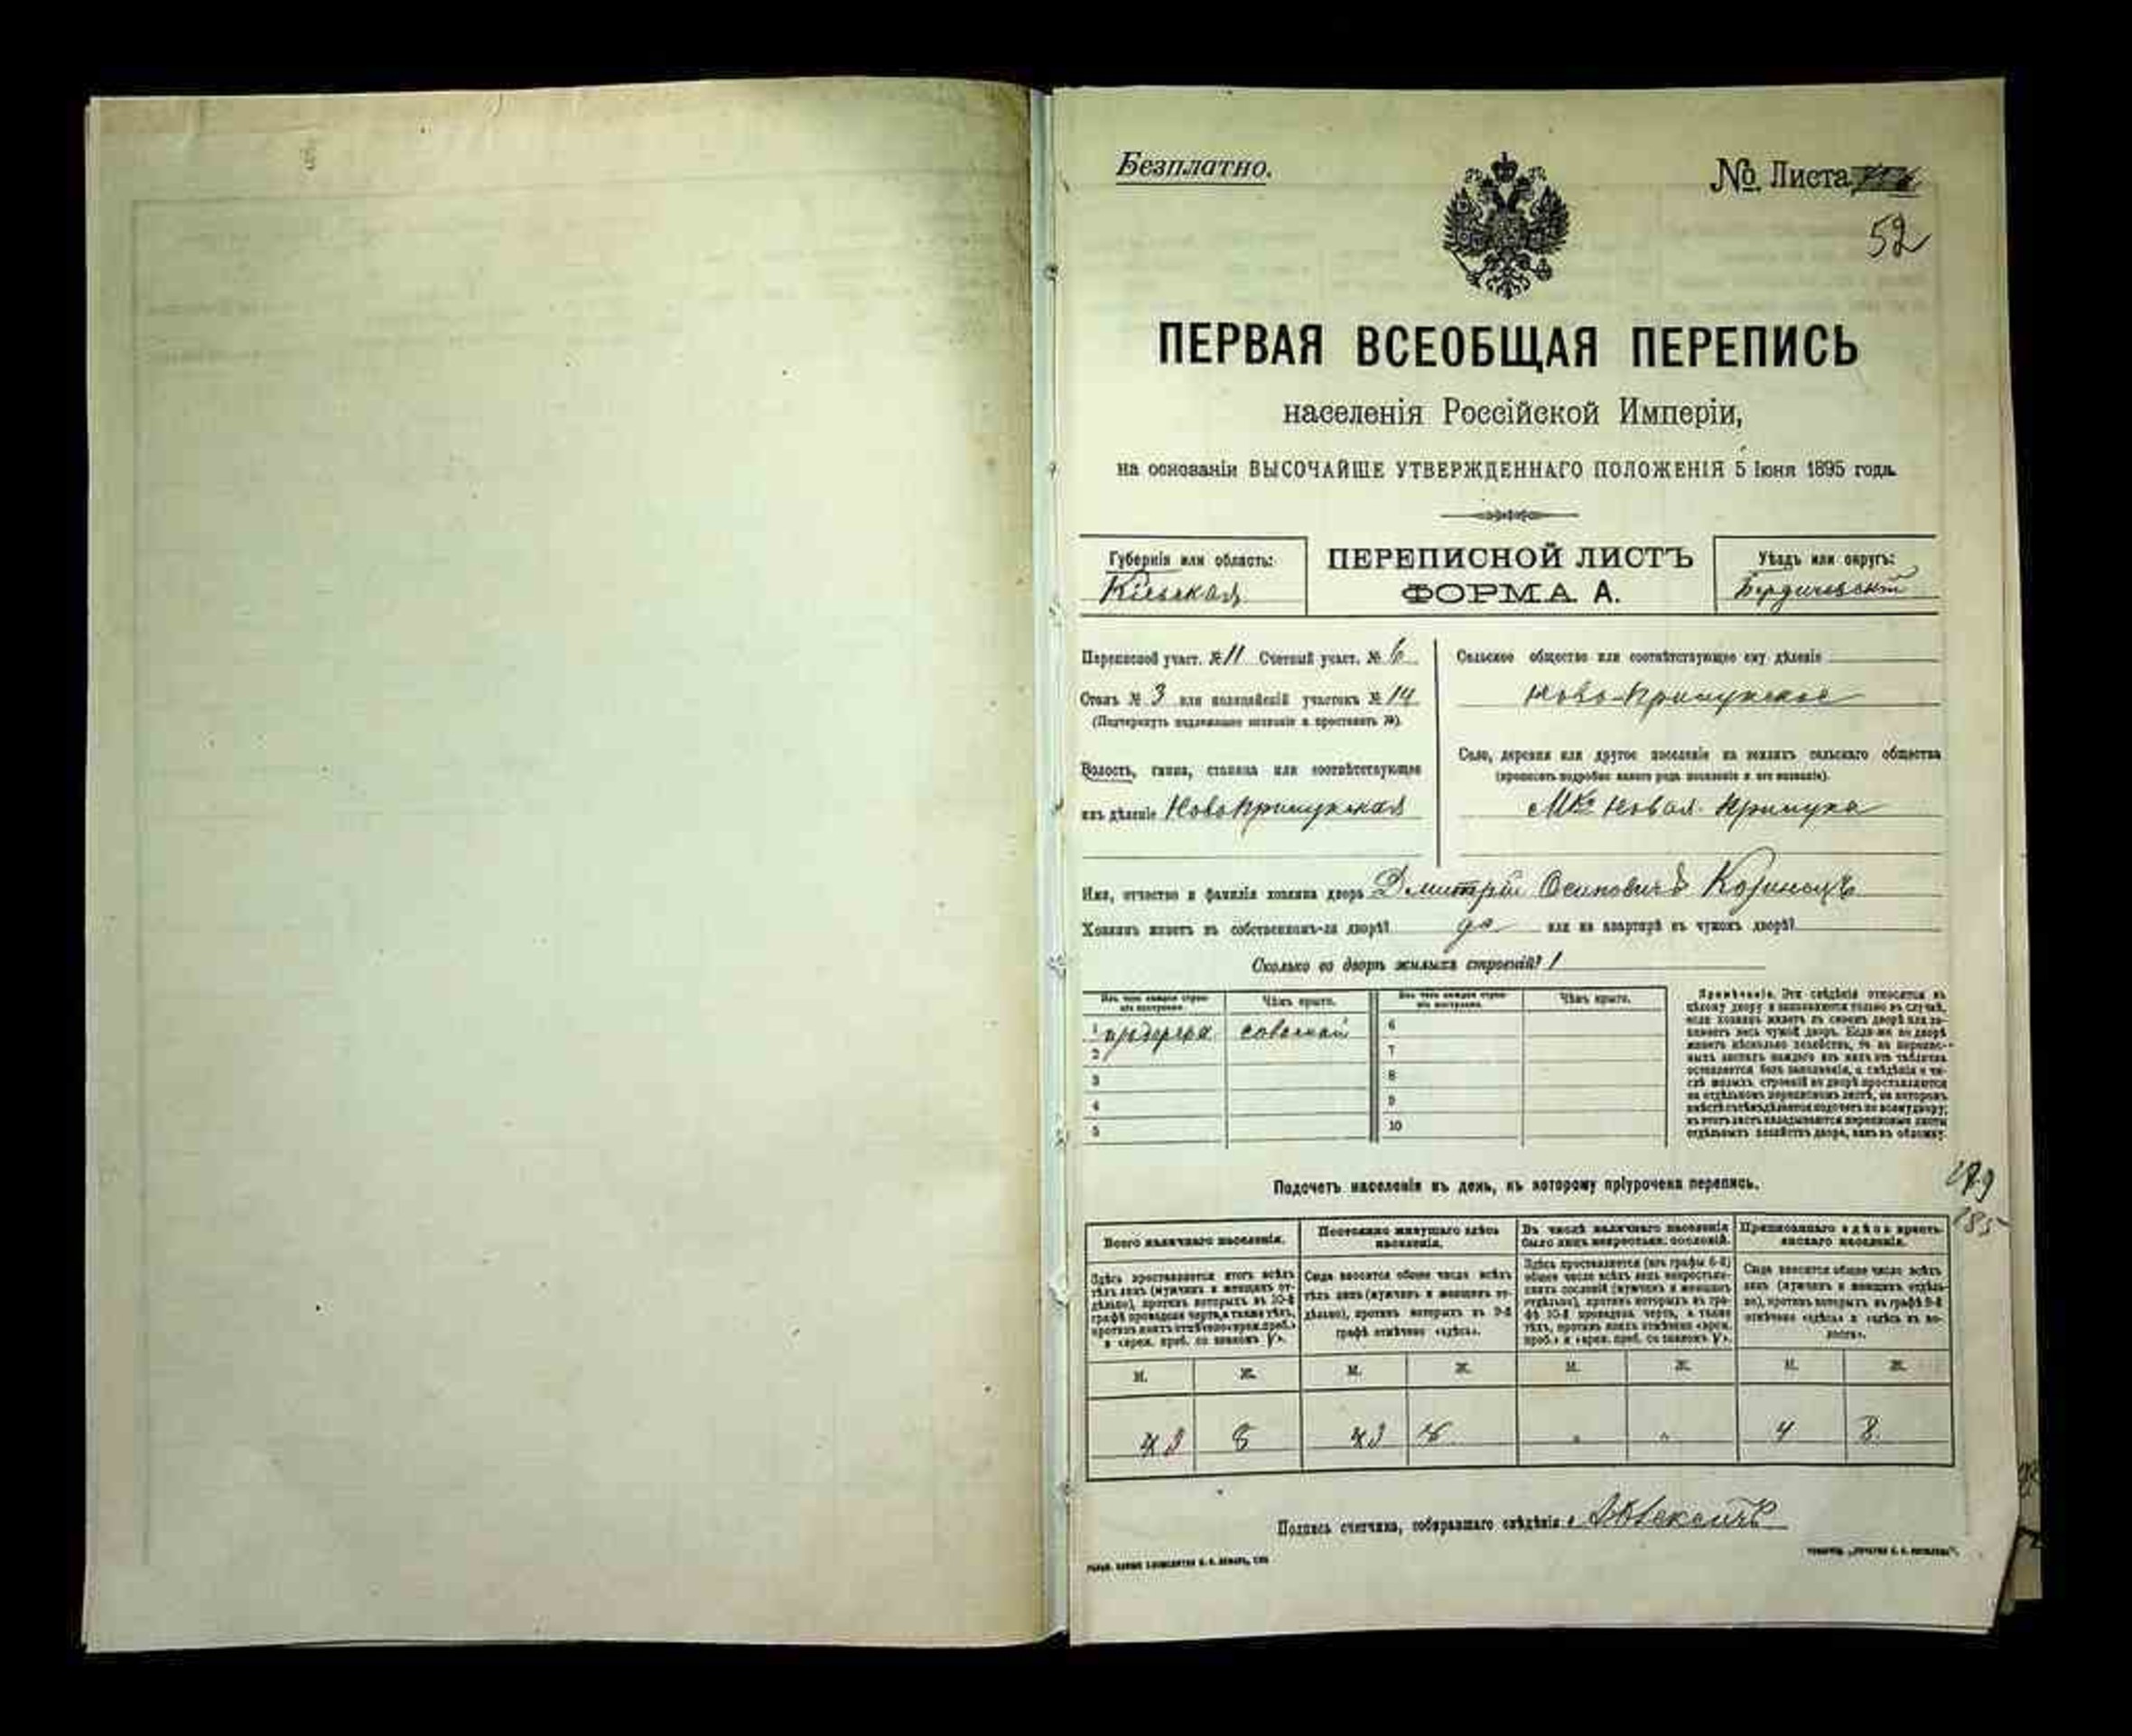 Безплатно.
№ Листа
52
ПЕРВАЯ ВСЕОБЩАЯ ПЕРЕПИСЬ
населенія Россійской Имперіи,
на основаніи ВЫСОЧАЙШЕ УТВЕРЖДЕННАГО ПОЛОЖЕНІЯ 5 Іюня 1895 года.
Губернія или область:
Кіевская
ПЕРЕПИСНОЙ ЛИСТЪ
ФОРМА А.
Уѣздъ или округъ:
Бердичевскій
Переписной участ. № 11 Счетный участ. № 6
Станъ № 3 или полицейскій участокъ № 14
(Подчеркнуть надлежащее названіе и проставить №).
Волость, гмина, станица или соотвѣтствующее
имъ дѣленіе НовоПрилукская
Сельское общество или соотвѣтствующее ему дѣленіе
Ново-Прилукское
Село, деревня или другое поселеніе на земляхъ сельскаго общества
(прописать подробно какого рода поселеніе и его названіе).
Мко Новая Прилука
Имя, отчество и фамилія хозяина двора Дмитрій Осиповичъ
Хозяинъ живетъ въ собственномъ-ли дворѣ? да или на квартирѣ въ чужомъ дворѣ?
Сколько во дворѣ жилыхъ строеній? 1
Изъ чего каждое строеніе построено.
Чѣмъ крыто.
Изъ чего каждое строеніе построено.
Чѣмъ крыто.
1 соломой 6
2 7
3 8
4 9
5 10
Примѣчаніе. Эти свѣдѣнія относятся къ
цѣлому двору и заполняются только въ случаѣ,
если хозяинъ живетъ въ своемъ дворѣ или за-
нимаетъ весь чужой дворъ. Если-же во дворѣ
живетъ нѣсколько хозяйствъ, то на перепис-
ныхъ листахъ каждаго изъ нихъ эта табличка
оставляется безъ заполненія, а свѣдѣнія о чи-
слѣ жилыхъ строеній во дворѣ проставляются
на отдѣльномъ переписномъ листѣ, на которомъ
вмѣстѣ съ тѣмъ дѣлается подсчетъ по всему двору;
въ этотъ листъ вкладываются переписные листы
отдѣльныхъ хозяйствъ двора, какъ въ обложку.
Подсчетъ населенія въ день, къ которому пріурочена перепись.
Всего наличнаго населенія.
Постоянно живущаго здѣсь населенія.
Въ числѣ наличнаго населенія было лицъ некрестьян. сословій.
Приписаннаго здѣсь кресть-янскаго населенія.
Здѣсь проставляется итогъ всѣхъ
тѣхъ лицъ (мужчинъ и женщинъ от-
дѣльно), противъ которыхъ въ 10-й
графѣ проведена черта, а также тѣхъ,
противъ коихъ отмѣчено «врем. преб.»
и «врем. преб. со знакомъ V».
Сюда вносится общее число всѣхъ
тѣхъ лицъ (мужчинъ и женщинъ от-
дѣльно), противъ которыхъ въ 9-й
графѣ отмѣчено «здѣсь».
Здѣсь проставляется (изъ графы 6-й)
общее число всѣхъ лицъ некрестьян-
скихъ сословій (мужчинъ и женщинъ
отдѣльно), противъ которыхъ въ гра-
фѣ 10-й проведена черта, а также
тѣхъ, противъ коихъ отмѣчено «врем.
преб.» и «врем. преб. со знакомъ V».
Сюда вносится общее число всѣхъ
лицъ (мужчинъ и женщинъ отдѣль-
но), противъ которыхъ въ графѣ 8-й
отмѣчено «здѣсь» и «здѣсь въ во-
лости».
М. Ж. М. Ж. М. Ж. М. Ж.
3 8 3 4 8
Подпись счетчика, собиравшаго свѣдѣнія: